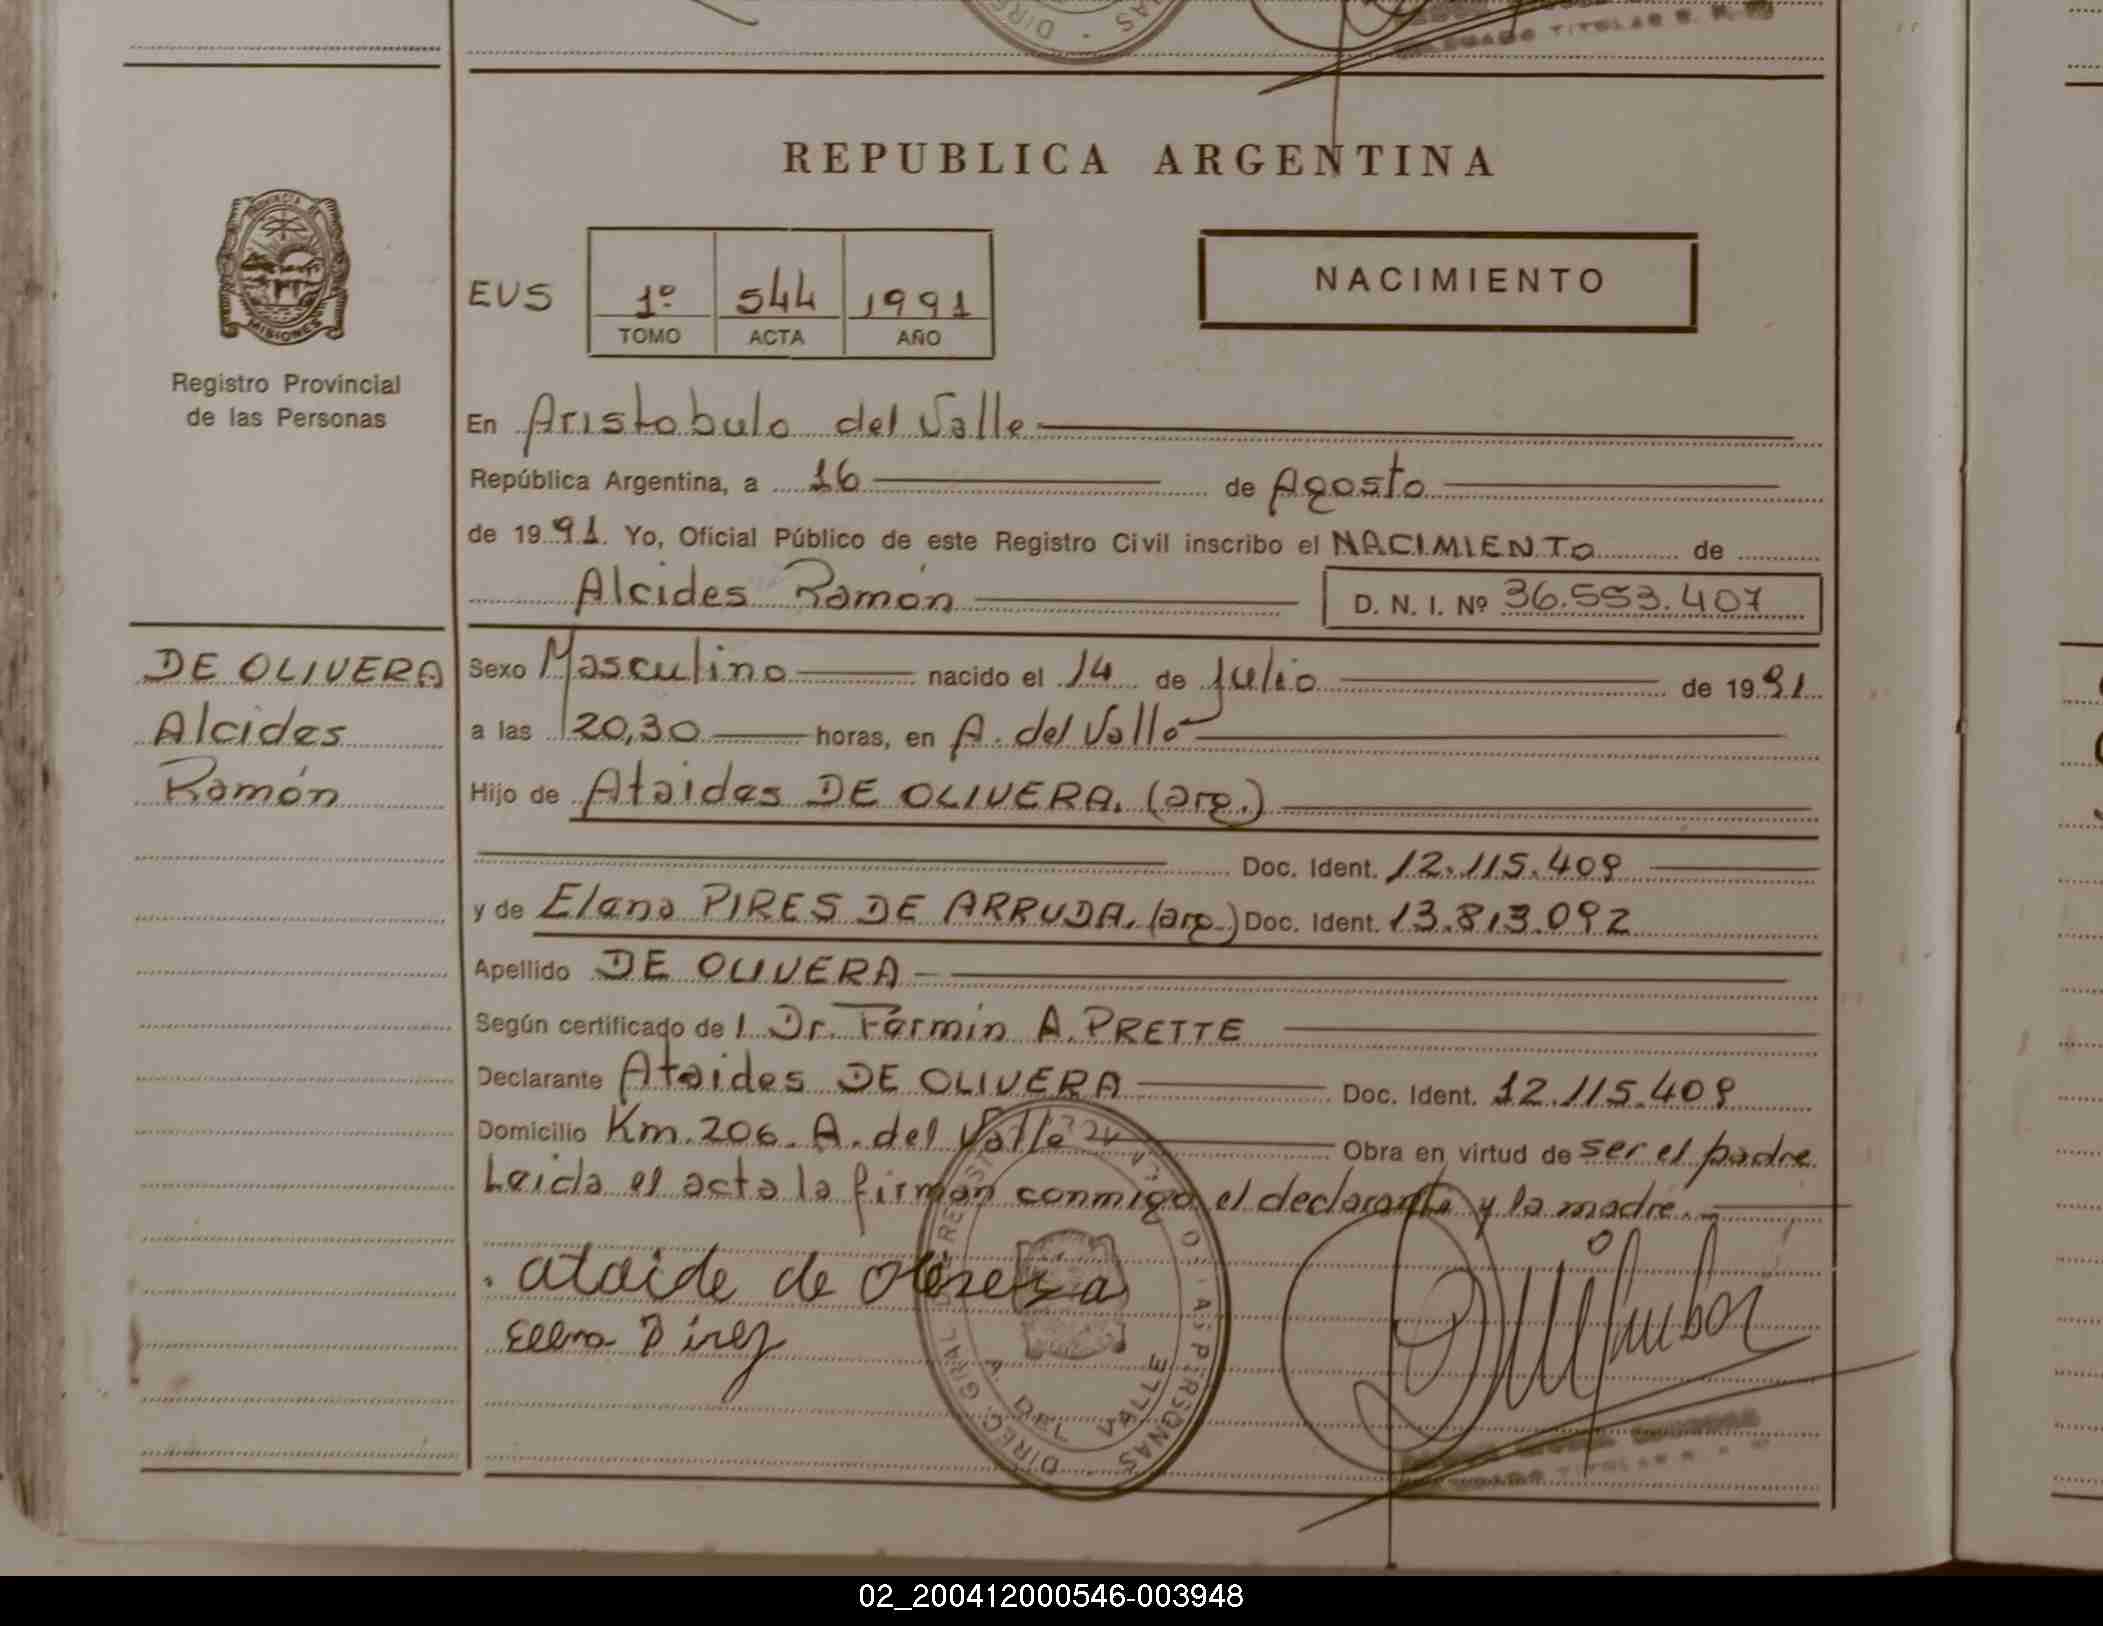 DIRE
NAS
TITULAR
REPUBLICA ARGENTINA
PROVINCIA DE
MISIONES
Registro Provincial
de las Personas
EUS 1º 544 1991
TOMO ACTA AÑO
NACIMIENTO
En Aristobulo del Valle
República Argentina, a 16 de Agosto
de 1991. Yo, Oficial Público de este Registro Civil inscribo el NACIMIENTO de
Alcides Ramón D. N. I. Nº 36.553.407
DE OLIVERA
Alcides
Ramón
Sexo Masculino nacido el 14 de Julio de 1991
a las 20,30 horas, en A. del Valle
Hijo de Ataides DE OLIVERA. (arg.)
Doc. Ident. 12.115.409
y de Elena PIRES DE ARRUDA. (arg.) Doc. Ident. 13.813.092
Apellido DE OLIVERA
Según certificado de l Dr. Fermin A. PRETTE
Declarante Ataides DE OLIVERA Doc. Ident. 12.115.409
Domicilio Km. 206. A. del Valle Obra en virtud de ser el padre.
Leida el acta la firman conmigo el declarante y la madre.
ataide de olivera
Elena Pirez
DIRECC. GRAL. DE REGIST
DE LAS PERSONAS
A. DEL VALLE
TITULAR
02_200412000546-003948